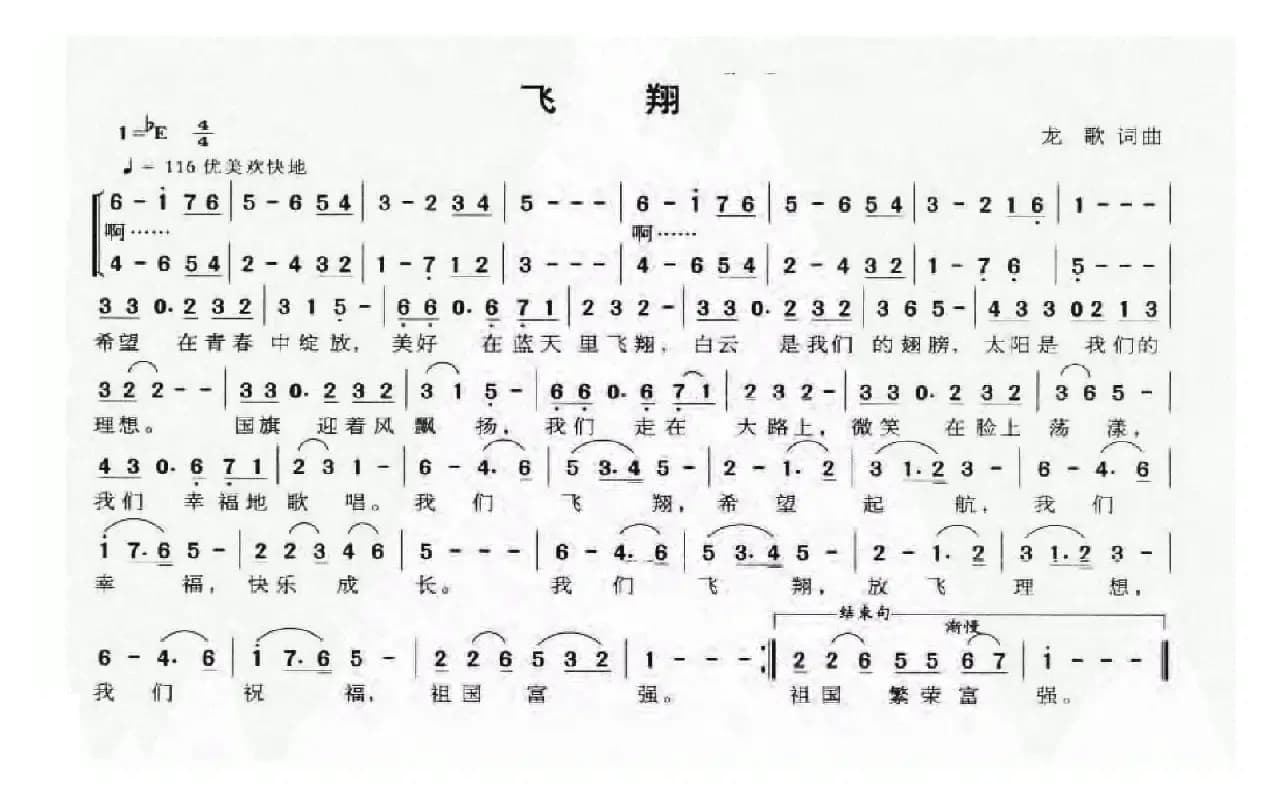 飞 翔
1=♭E 4/4
龙 歌 词曲
♩= 116 优美欢快地
6 - i 7 6 | 5 - 6 5 4 | 3 - 2 3 4 | 5 - - - | 6 - i 7 6 | 5 - 6 5 4 | 3 - 2 1 6 | 1 - - - |
啊…… 啊……
4 - 6 5 4 | 2 - 4 3 2 | 1 - 7 1 2 | 3 - - - | 4 - 6 5 4 | 2 - 4 3 2 | 1 - 7 6 | 5 - - - |
3 3 0. 2 3 2 | 3 1 5 - | 6 6 0. 6 7 1 | 2 3 2 - | 3 3 0. 2 3 2 | 3 6 5 - | 4 3 3 0 2 1 3 |
希望 在青春 中绽放, 美好 在蓝天 里飞翔, 白云 是我们 的翅膀, 太阳是 我们的
3 2 2 - - | 3 3 0. 2 3 2 | 3 1 5 - | 6 6 0. 6 7 1 | 2 3 2 - | 3 3 0. 2 3 2 | 3 6 5 - |
理想。 国旗 迎着风 飘 扬, 我们 走在 大路上, 微笑 在脸上 荡 漾,
4 3 0. 6 7 1 | 2 3 1 - | 6 - 4. 6 | 5 3. 4 5 - | 2 - 1. 2 | 3 1. 2 3 - | 6 - 4. 6 |
我们 幸福地 歌 唱。 我 们 飞 翔, 希 望 起 航, 我 们
i 7. 6 5 - | 2 2 3 4 6 | 5 - - - | 6 - 4. 6 | 5 3. 4 5 - | 2 - 1. 2 | 3 1. 2 3 - |
幸 福, 快乐 成 长。 我 们 飞 翔, 放 飞 理 想,
结束句
渐慢
6 - 4. 6 | i 7. 6 5 - | 2 2 6 5 3 2 | 1 - - - :| 2 2 6 5 5 6 7 | i - - - ‖
我 们 祝 福, 祖国 富 强。 祖国 繁荣富 强。